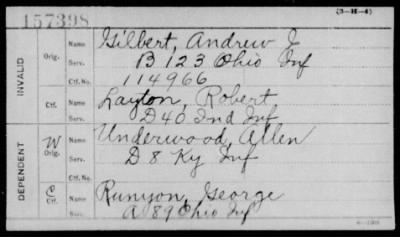 157398
(3-H-4)
INVALID
Orig. Name Gilbert, Andrew J
Serv. B 123 Ohio Inf
Ctf. No. 114966
Ctf. Name Layton, Robert
Serv. D 40 Ind Inf
DEPENDENT
W Orig. Name Underwood, Allen
Serv. D 8 Ky Inf
Ctf. No.
C Ctf. Name Runyon, George
Serv. A 89 Ohio Inf